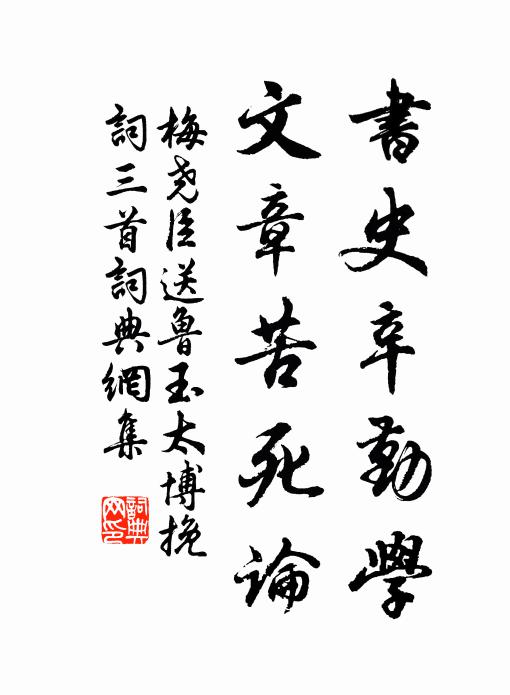 書史辛勤學
文章苦死論
梅尧臣送魯玉太博挽
詞三首詞典網集
詞典
网印